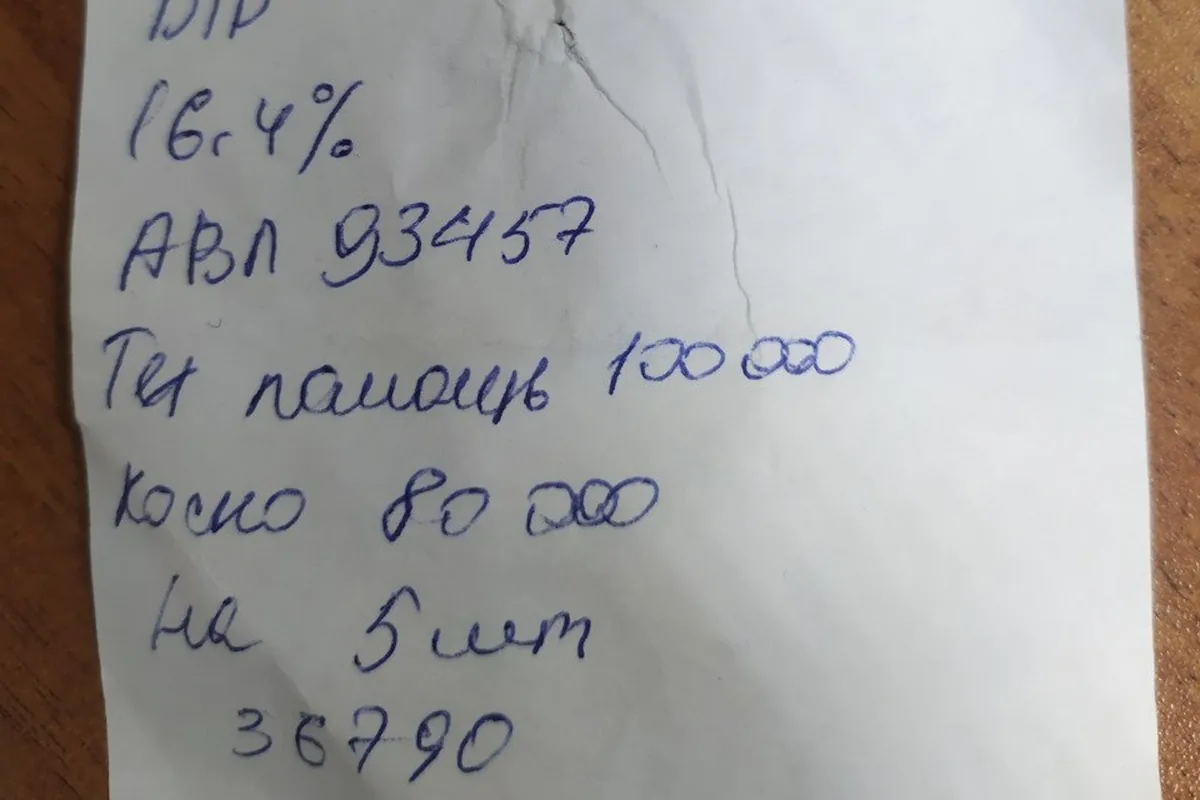 16,4%
АВЛ 93457
Тех помощь 100 000
Коско 80 000
На 5 шт
36790